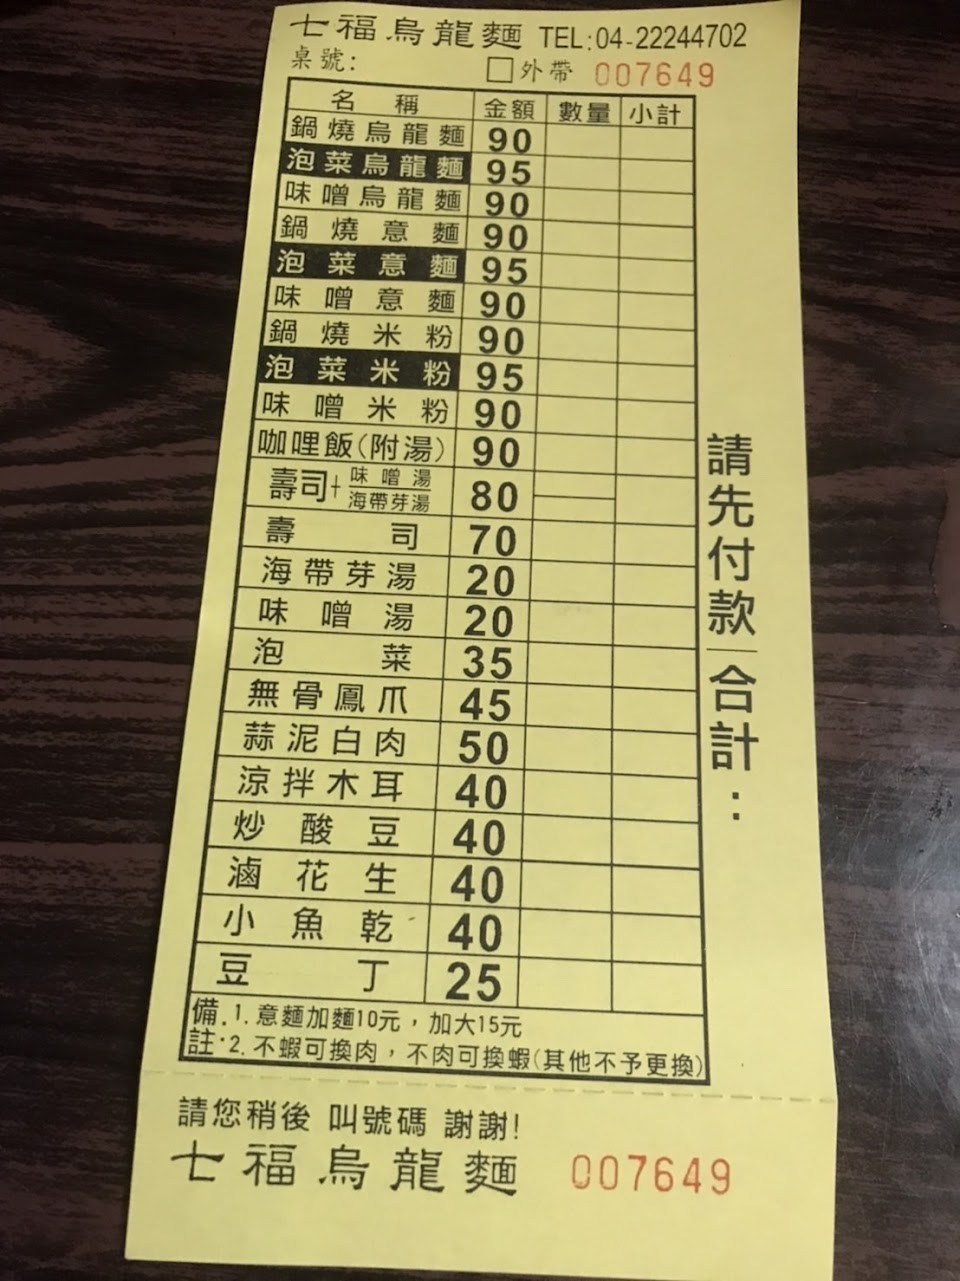 七福烏龍麵 TEL:04-22244702
桌號: □外帶 007649
名稱 金額 數量 小計
鍋燒烏龍麵 90
泡菜烏龍麵 95
味噌烏龍麵 90
鍋燒意麵 90
泡菜意麵 95
味噌意麵 90
鍋燒米粉 90
泡菜米粉 95
味噌米粉 90
咖哩飯(附湯) 90
壽司+味噌湯/海帶芽湯 80
壽司 70
海帶芽湯 20
味噌湯 20
泡菜 35
無骨鳳爪 45
蒜泥白肉 50
涼拌木耳 40
炒酸豆 40
滷花生 40
小魚乾 40
豆丁 25
備註:1. 意麵加麵10元,加大15元
2. 不蝦可換肉,不肉可換蝦(其他不予更換)
請先付款
合計:
請您稍後 叫號碼 謝謝!
七福烏龍麵 007649